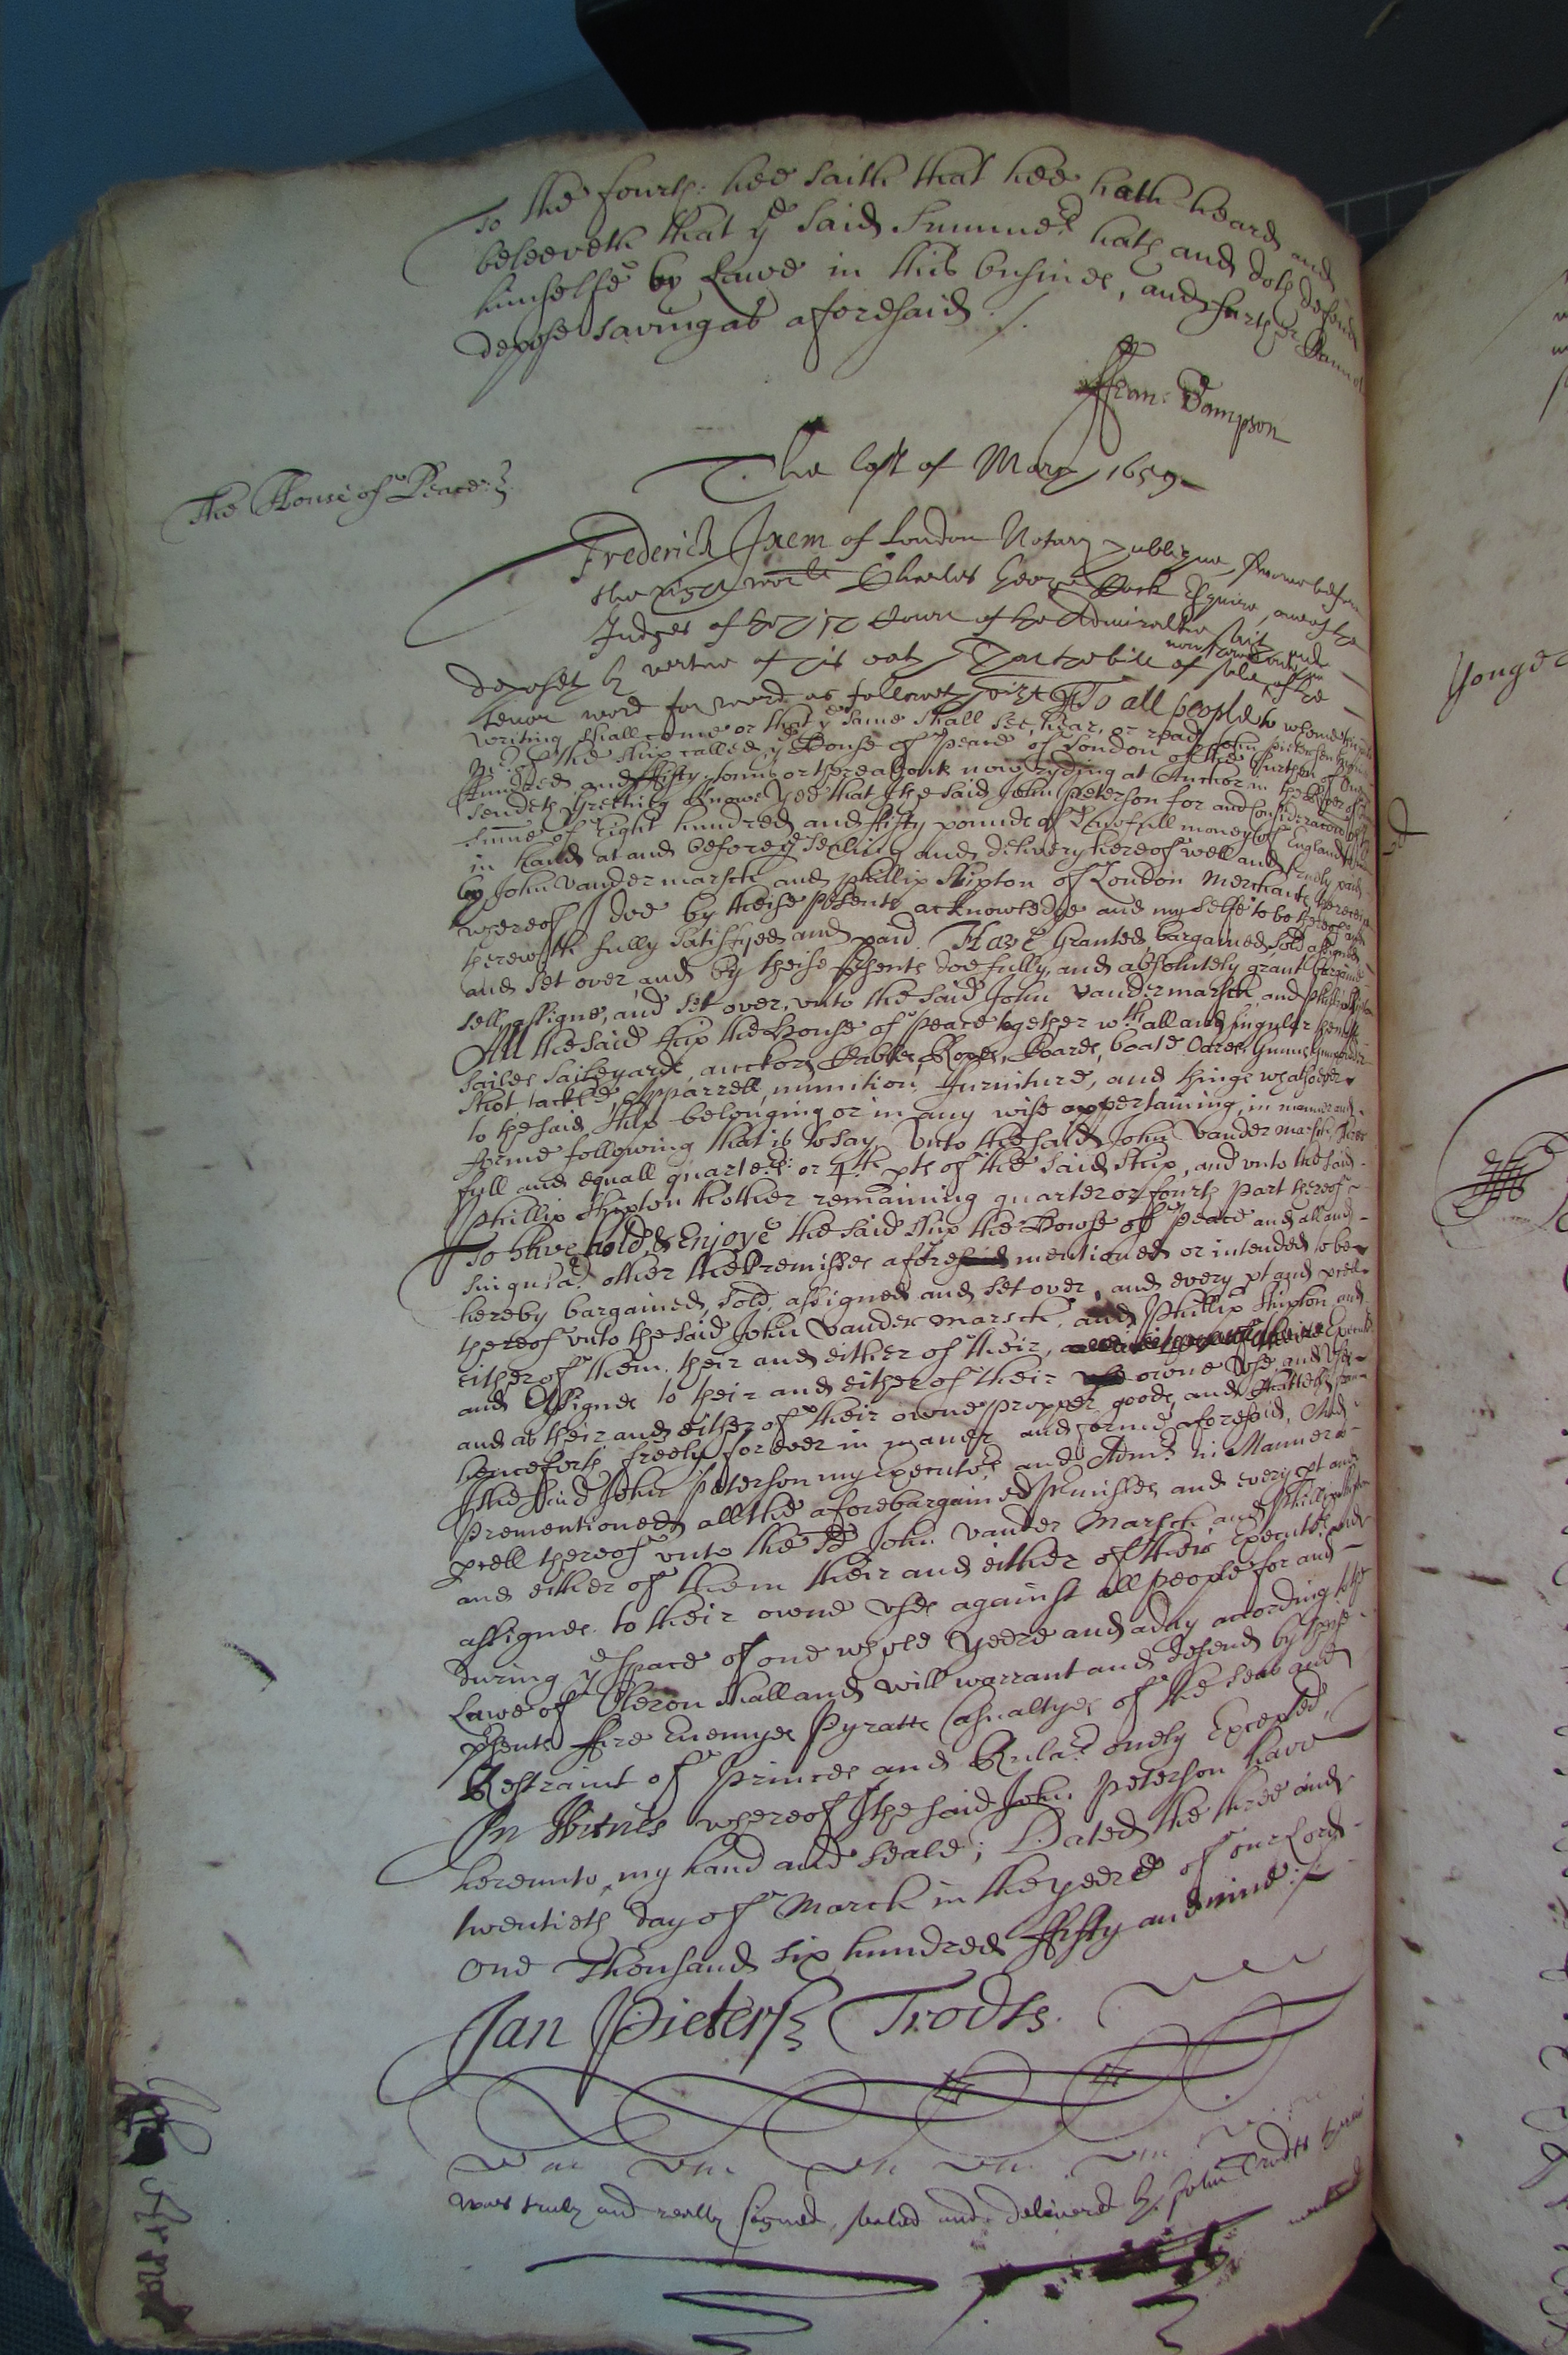 To the fourth: hee saith that hee hath heard and
beleeveth that ye said Summer hath and doth defend
himselfe by Lawe in this busines, and further cannot
depose saving as aforesaid ./.
ffran: Sampson
The last of May 1659
The House of Peace: 3.
Frederick Ixem of London Notary publique, sworne before
the right worll Charles George Cock Esquire, one of the
Judges of the high Court of the Admiraltie saith and
deposeth by vertue of his oath That the bill of sale of the
tenor word for word as followeth, vizt To all people to whome this
writing shall come or that ye same shall see, hear, or read, I John Pietersen
Mr of the ship called ye House of Peace of London of the burthen of One
Hundred and ffifty tonns or thereabouts now ryding at Anchor in the River of
sendeth Greeting Knowe Yee that I the said John Peterson for and in consideracon of
summe of Eight hundred and ffifty pounds of Lawfull money of England
in hand at and before ye sealing and delivery hereof well and truly paid
by John Vander marsch and Phillip Skipton of London Merchants the receipt
whereof I doe by theise psents acknowledge and my selfe to be thereof and
therewith fully satisfyed and paid Have Granted, bargained, sold, assigned
and set over, and by theise psents doe fully, and absolutely grant bargaine
sell, assigne, and set over, unto the said John Vandermarsch, and Phillip Skipton
All the said ship the House of Peace together wth all and singular the masts
sailes saileyards, anckors Cables, Ropes, Boards, boate Oares, Gunns Gunpouder
shot, tackle, Apparrell, munition, furniture, and things whatsoever
to the said ship belonging or in any wise appertaining, in manner and
forme following that is to say Unto the said John Vander marsch, three
full and equall quarters: or 4th pts of the said ship, and unto the said
Phillip Skipton thother remaining quarter or fourth part thereof
To Have hold, & Enjoye the said ship the House of Peace and all and
singular other the Premisses aforesaid mentioned or intended to be
hereby bargained, sold, assigned and set over, and every pt and prcell
thereof unto the said John Vander marsch and Phillip Skipton and
either of them, their and either of their, Execut
and Assignes to their and either of their owne Use and Uses
and as their and either of their owne propper goods, and Chattells from
henceforth freely for ever in maner and forme aforesaid, And
I the said John Peterson my Executors and Admrs in Manner
prementioned all the aforebargained premisses and every pt and
prcell thereof unto the sd John Vander Marsch and Phillip Skipton
and either of them their and either of their Executors and
assignes to their owne uses against all people for and
during ye space of one whole yeare and a day according to the
Lawe of Oleron shall and will warrant and defend by these
psents ffire Enemyes Pyratts Casualtyes of the seas and
Restraint of Princes and Rulers onely Excepted,
In Witnes whereof I the said John Peterson have
hereunto my hand and seale; Dated the three and
twentieth day of March in the yeare of our Lord
One Thousand six hundred ffifty and nine ./.
Jan Pieters Trodts.
was truly and really signed, sealed and delivered by John Trodts